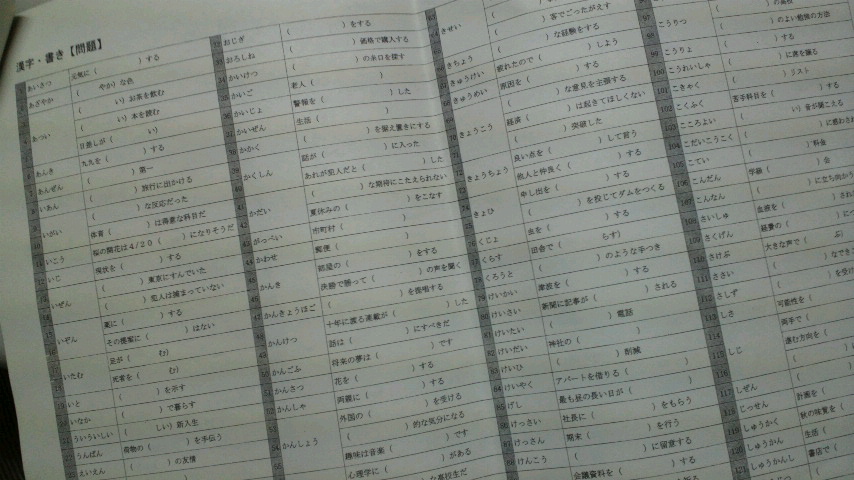 漢字・書き【問題】
あいさつ 元気に（ ）する
あざやか （ やか）な色
あつい （ い）お茶を飲む
（ い）本を読む
日差しが（ い）
あんき 九九を（ ）する
あんぜん （ ）第一
いあん （ ）旅行に出かける
いがい （ ）な反応だった
体育（ ）は得意な科目だ
いこう 桜の開花は４/２０（ ）になりそうだ
いじ 現状を（ ）する
いぜん （ ）東京にすんでいた
（ ）犯人は捕まっていない
いぞん 薬に（ ）する
その提案に（ ）はない
いたむ 足が（ む）
死者を（ む）
いと （ ）を示す
いなか （ ）で暮らす
ういういしい （ しい）新入生
うんぱん 荷物の（ ）を手伝う
えいえん （ ）の友情
おじぎ （ ）をする
おろしね （ ）価格で購入する
かいけつ （ ）の糸口を探す
かいご 老人（ ）
かいじょ 警報を（ ）した
かいぜん 生活（ ）
かかく （ ）を据え置きにする
かくしん 話が（ ）に入った
あれが犯人だと（ ）した
（ ）な期待にこたえられない
かだい 夏休みの（ ）をこなす
がっぺい 市町村（ ）
かわせ 郵便（ ）
かんき 部屋の（ ）をする
決勝で勝って（ ）の声を聞く
かんきょうほご （ ）を提唱する
かんけつ 十年に渡る連載が（ ）した
話は（ ）にすべきだ
かんごふ 将来の夢は（ ）です
かんさつ 花を（ ）する
かんしゃ 両親に（ ）する
かんしょう 外国の（ ）を受ける
（ ）的な気分になる
趣味は音楽（ ）です
心理学に（ ）がある
きせい （ ）客でごったがえす
きちょう （ ）な経験をする
きゅうけい 疲れたので（ ）しよう
きゅうめい 原因を（ ）する
きょうこう （ ）な意見を主張する
経済（ ）は起きてほしくない
（ ）突破した
きょうちょう 良い点を（ ）して言う
他人と仲良く（ ）する
きょひ 申し出を（ ）する
（ ）を投じてダムをつくる
くじょ 虫を（ ）する
くらす 田舎で（ らす）
くろうと （ ）のような手つき
けいかい 津波を（ ）する
けいさい 新聞に記事が（ ）される
けいたい （ ）電話
けいだい 神社の（ ）
けいひ （ ）削減
けいやく アパートを借りる（ ）
げし 最も昼の長い日が（ ）
けっさい 社長に（ ）をもらう
けっさん 期末（ ）を行う
けんこう （ ）に留意する
会議資料を（ ）する
こうりつ （ ）のよい勉強の方法
こうりょ （ ）する
こうれいしゃ （ ）に席を譲る
こきゃく （ ）リスト
こくふく 苦手科目を（ ）する
こころよい （ い）音が聞こえる
こだいこうこく
こてい （ ）料金
こんだん 学級（ ）会
こんなん （ ）に立ち向かう
さいしゅ 血液を（ ）
さくげん 経費の（ ）
さけぶ 大きな声で（ ぶ）
ささい
さしず
しさ 可能性を（
しじ 両手で（
進む方向を（
しぜん
じっせん 計画を（
しゅうかく 秋の味覚を（
しゅうかん 生活（
しゅうかんし 書店で（